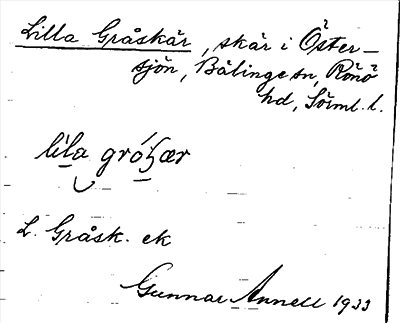 Lilla Gråskär, skär i Öster-
sjön, Bälinge sn, Rönö
hd, Sörml. l.
li̱la gróʃ̱ær
L. Gråsk. ek
Gunnar Annell 1933